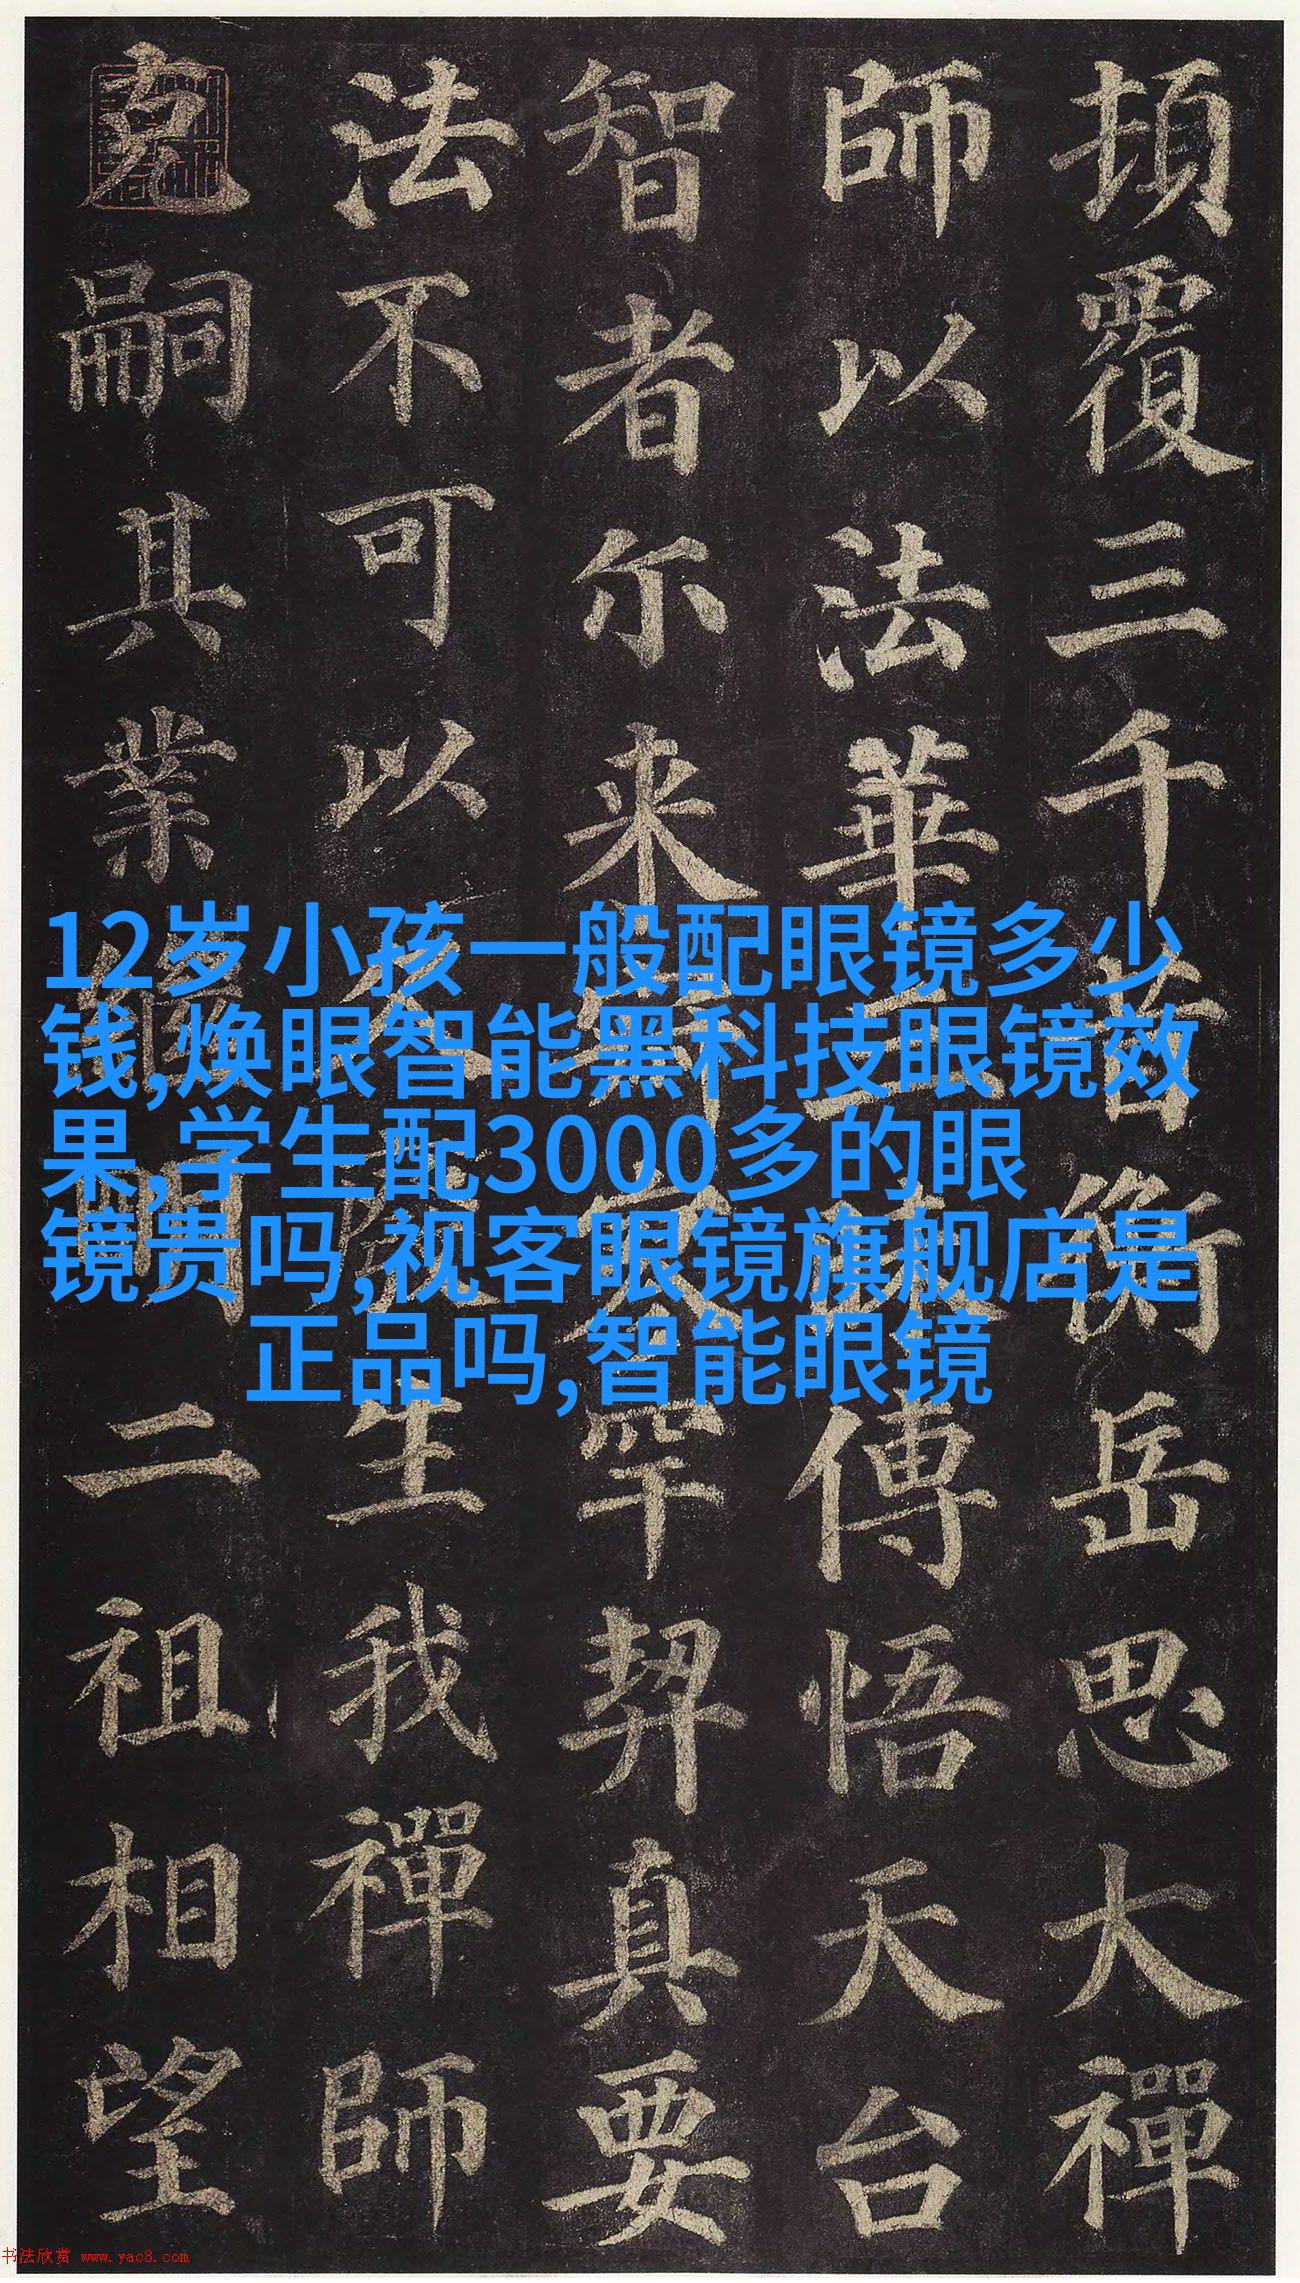 頂覆三千昔衡岳思大禪
師以法華三昧傳悟天台
智者尔来寂寥罕契真要
法不可以久廢生我禪師
克嗣其業継明二祖相望
12岁小孩一般配眼镜多少
钱,焕眼智能黑科技眼镜效
果,学生配3000多的眼
镜贵吗,视客眼镜旗舰店是
正品吗,智能眼镜
书法欣赏 www.yac8.com